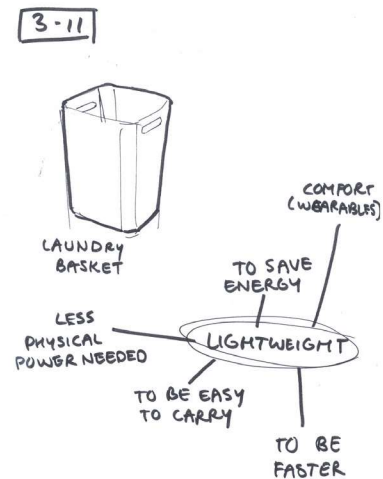 3-11
LAUNDRY
BASKET
COMFORT
(WEARABLES)
TO SAVE
ENERGY
LESS
PHYSICAL
POWER NEEDED
LIGHTWEIGHT
TO BE EASY
TO CARRY
TO BE
FASTER